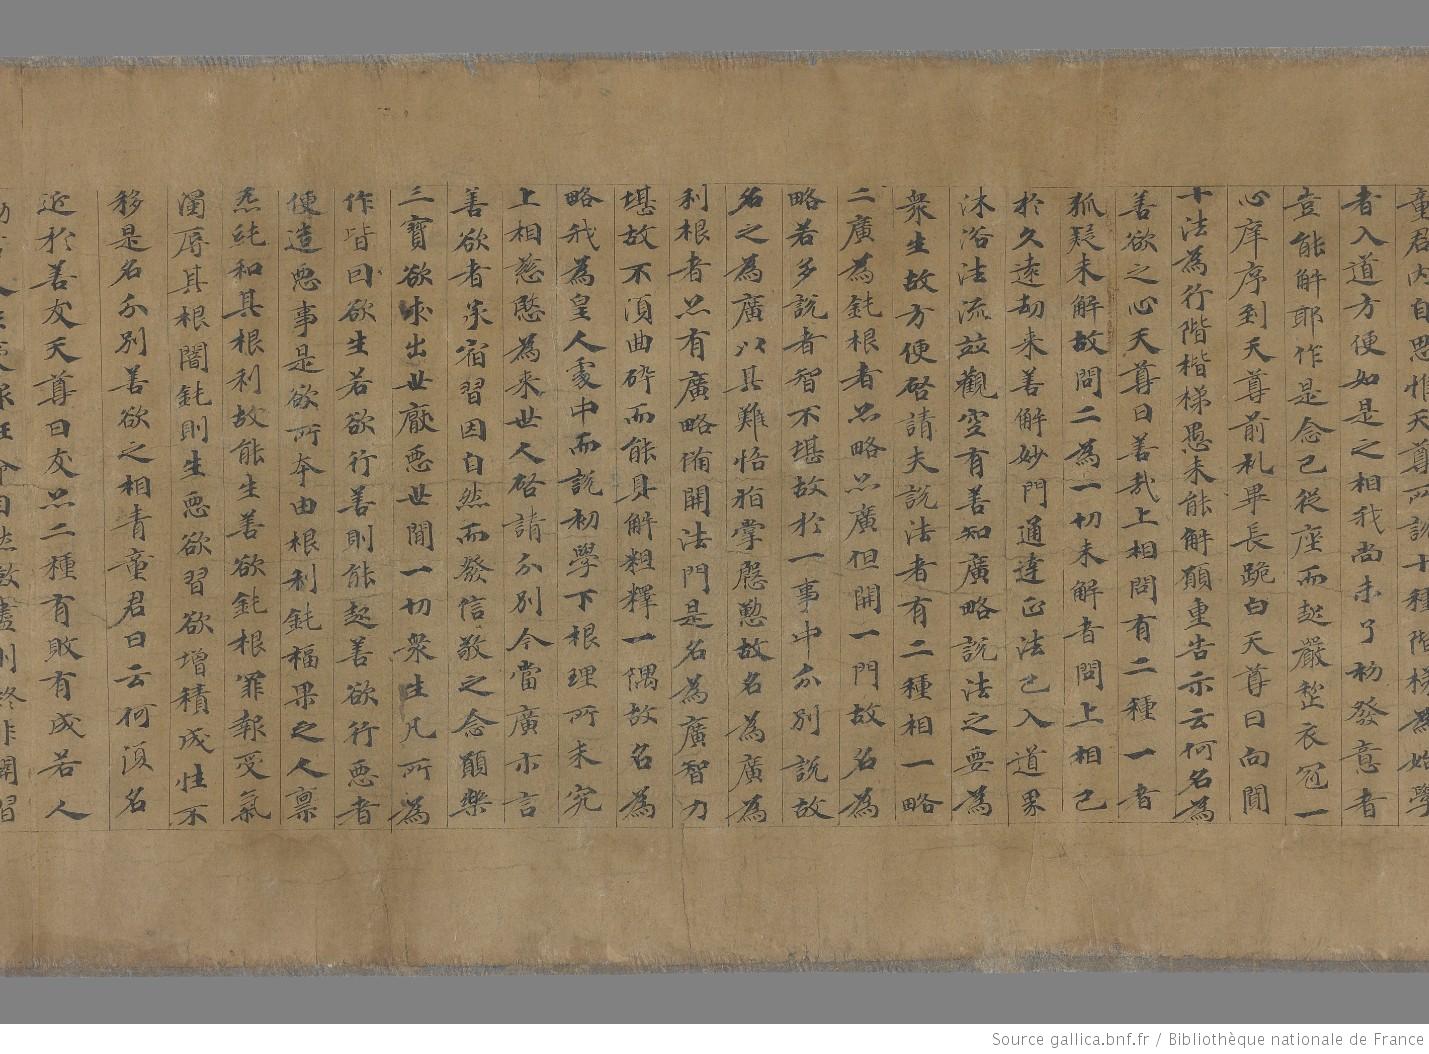 童君內自思惟天尊所說十種階梯為始學
者入道方便如是之相我尚未了初發意者
豈能解耶作是念已從座而起嚴整衣冠一
心庠序到天尊前礼畢長跪白天尊曰向聞
十法為行階楷梯愚未能解願重告示云何名為
善欲之心天尊曰善哉上相問有二種一者
狐疑未解故問二為一切未解者問上相已
於久遠劫来善解妙門通達正法已入道果
沐浴法流並觀空有善知廣略說法之要為
衆生故方便啓請夫說法者有二種相一略
二廣為鈍根者亦略亦廣但開一門故名為
略若多說者智不堪故於一事中分別說故
名之為廣以其難悟指掌慇懃故名為廣為
利根者亦有廣略俻開法門是名為廣智力
堪故不湏曲碎而能具解粗釋一隅故名為
略我為皇人畧中而說初學下根理所未究
上相慈愍為来世人啓請分別今當廣示言
善欲者宗宿習因自然而發信敬之念願樂
三寶欲求出世厭惡世間一切衆生凡所為
作皆曰欲生若欲行善則能起善欲行惡者
便造惡事是欲所本由根利鈍福果之人禀
炁純和其根利故能生善欲鈍根罪報受氣
濁辱其根闇鈍則生惡欲習欲增積成性不
移是名分別善欲之相青童君曰云何湏名
近於善友天尊曰友亦二種有敗有成若人